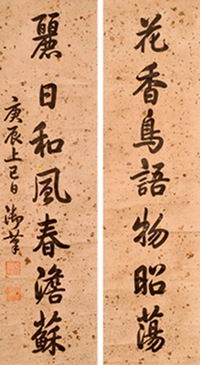 花香鳥語物昭蕩
麗日和風春澹蘇
庚辰上巳日 御筆